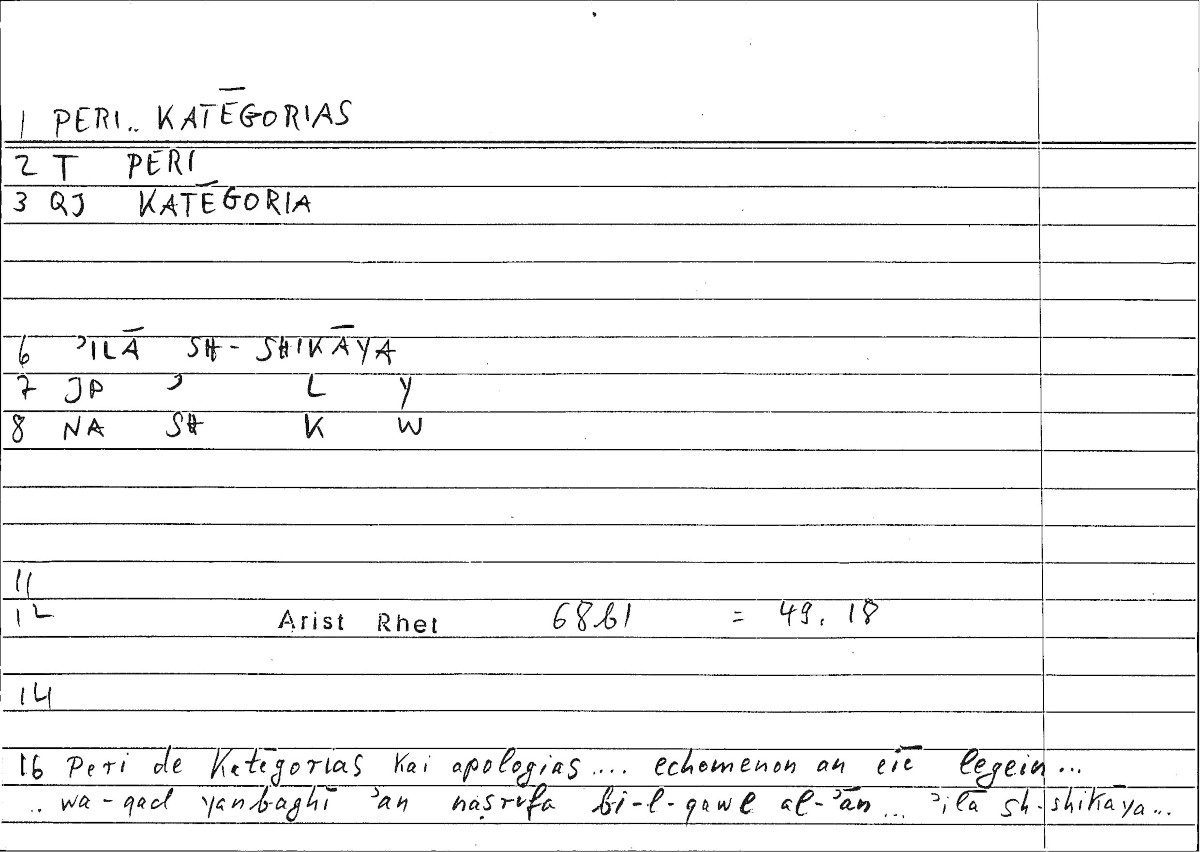 1 PERI.. KATĒGORIAS
2 T PERI
3 QJ KATĒGORIA
6 ʾILĀ SH-SHIKĀYA
7 JP ʾ L Y
8 NA SH K W
11
12 Arist Rhet 68b1 = 49.18
14
16 Peri de Katēgorias kai apologias.... echomenon an eiē legein...
.. wa-qad yanbaghī ʾan naṣrifa bi-l-qawl al-ʾān... ʾilā sh-shikāya...